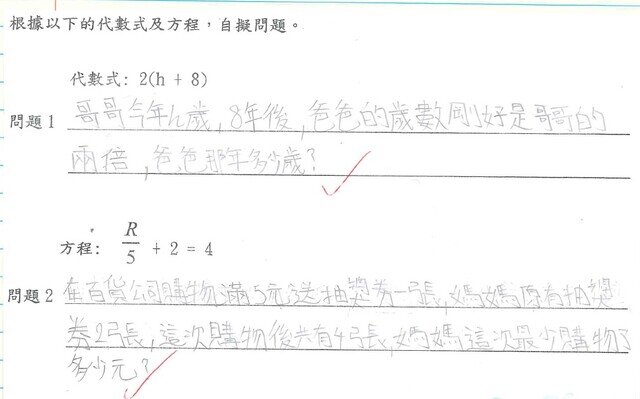 根據以下的代數式及方程，自擬問題。
代數式: 2(h + 8)
問題1 哥哥今年h歲,8年後,爸爸的歲數剛好是哥哥的
兩倍,爸爸那年多少歲?
方程: R/5 + 2 = 4
問題2 在百貨公司購物滿5元送抽獎券一張,媽媽原有抽獎
券2張,這次購物後共有4張,媽媽這次最少購物了
多少元?